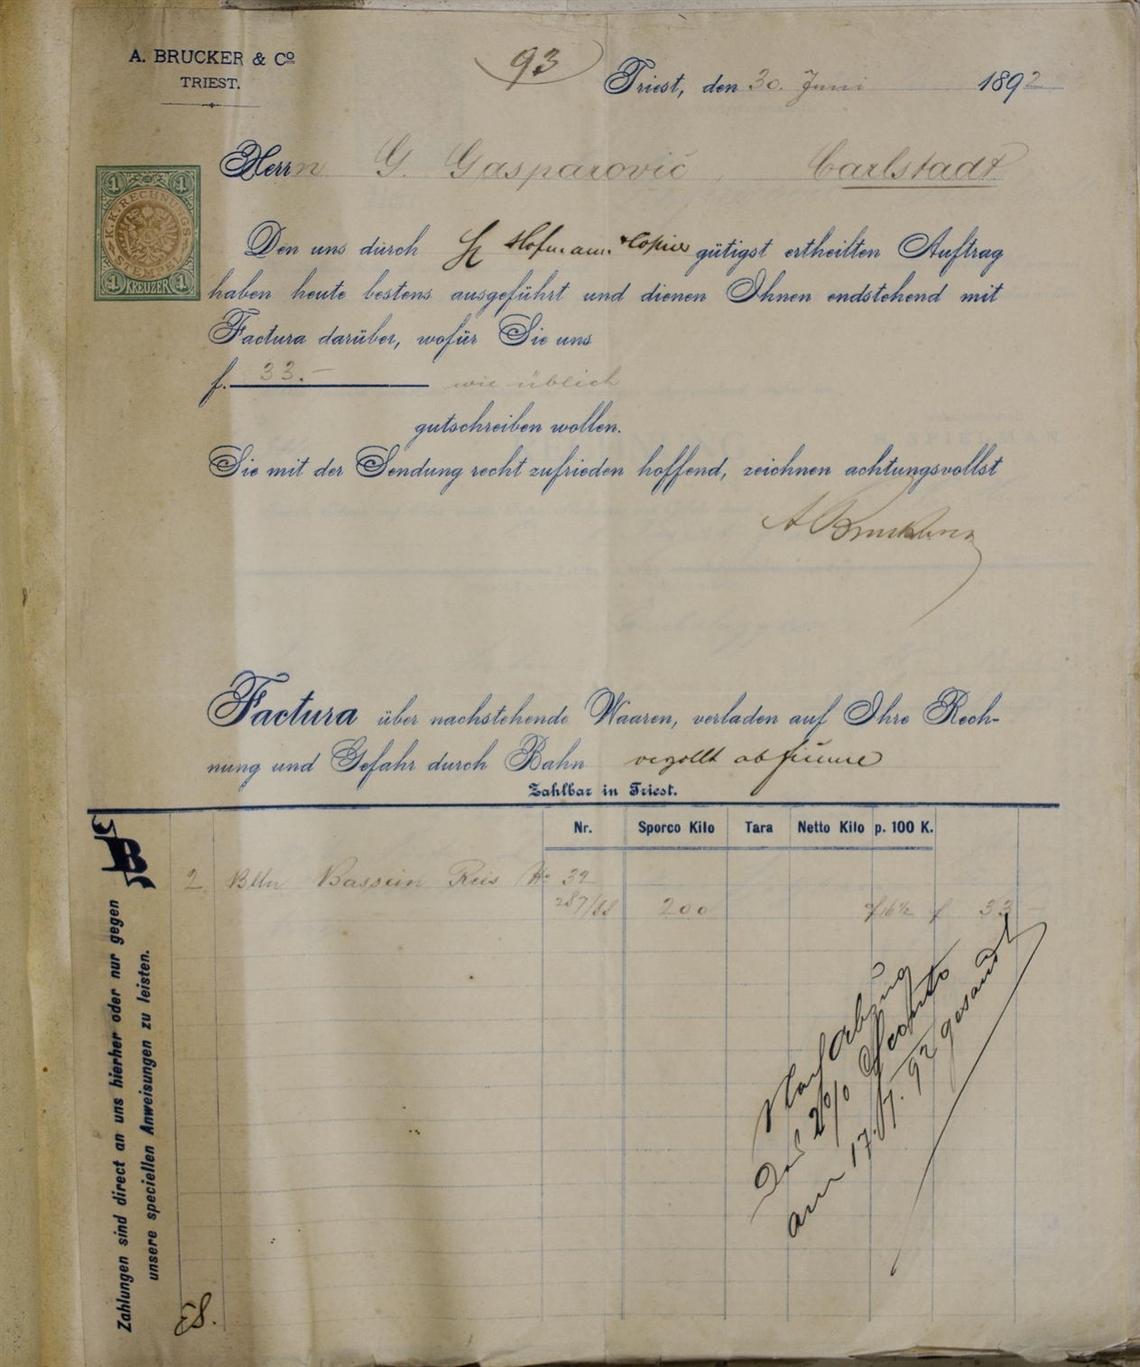 A. BRUCKER & Co
TRIEST.
93
Triest, den 30. Juni 1892
Herrn G. Gasparovič, Carlstadt
K.K. RECHNUNGS-STEMPEL
1 KREUZER 1
Den uns durch Hofmann gütigst ertheilten Auftrag
haben heute bestens ausgeführt und dienen Ihnen endstehend mit
Factura darüber, wofür Sie uns
f. 33.- wie üblich
gutschreiben wollen.
Sie mit der Sendung recht zufrieden hoffend, zeichnen achtungsvollst
A Brucker
Factura über nachstehende Waaren, verladen auf Ihre Rech-
nung und Gefahr durch Bahn vezollt ab fiume
Zahlbar in Triest.
Nr. Sporco Kilo Tara Netto Kilo p. 100 K.
2 Blln Bassein Reis No 32
287/88 200 f 16½ f 33 -
Nach Abzug
des 2% Sconto
am 17./7. 92 gesandt
Zahlungen sind direct an uns hierher oder nur gegen
unsere speciellen Anweisungen zu leisten.